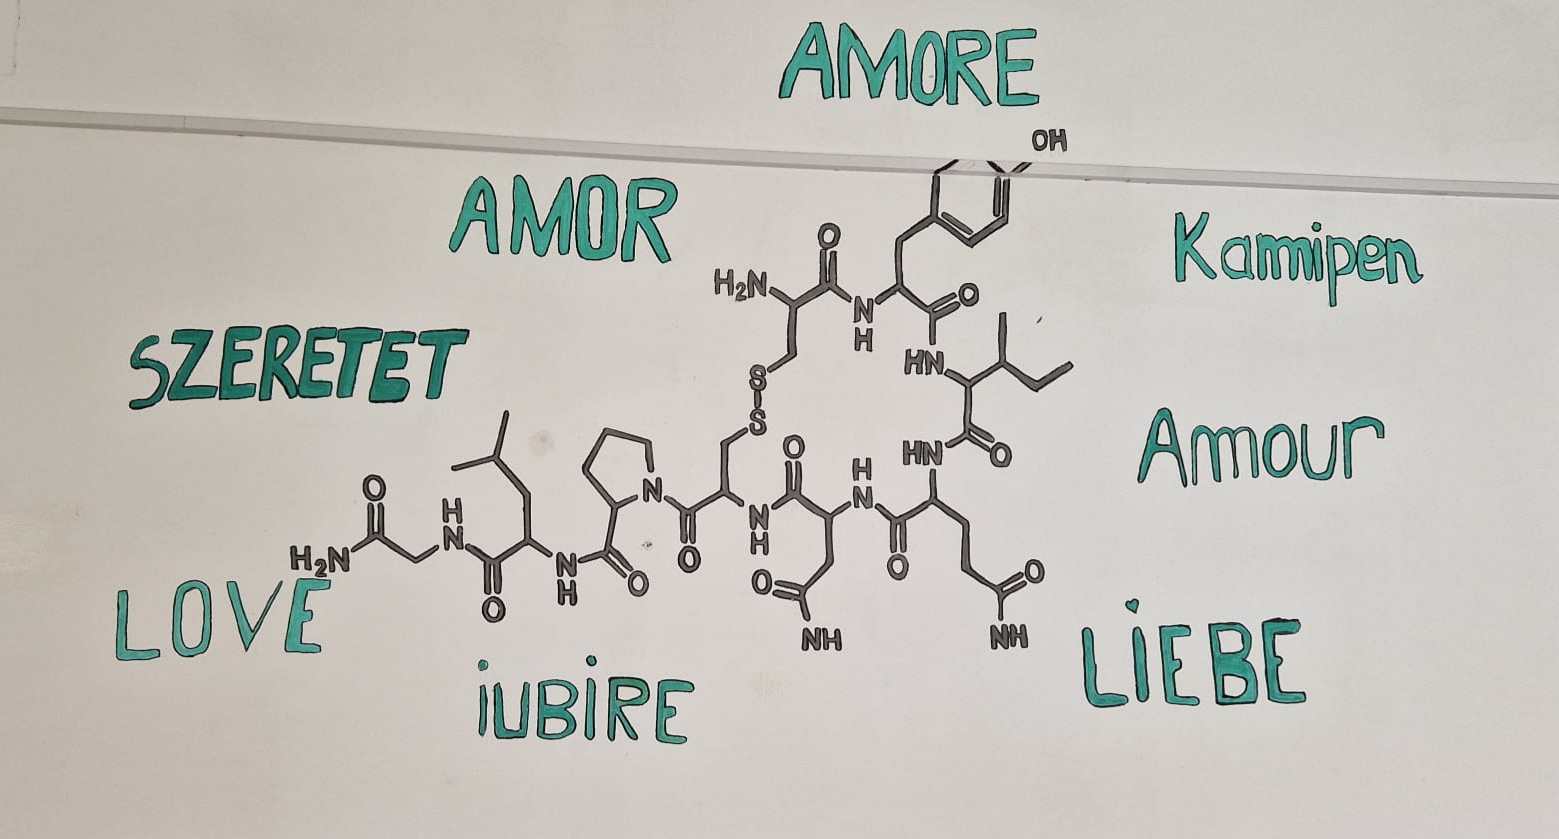 AMORE
OH
AMOR
Kamipen
O
H₂N
O
N
H
HN
SZERETET
S
S
Amour
O
HN
O
H
N
O
N
H
N
O
H
N
O
H₂N
O
N
H
O
O
O
NH
O
NH
O
LOVE
LiEBE
iUBiRE